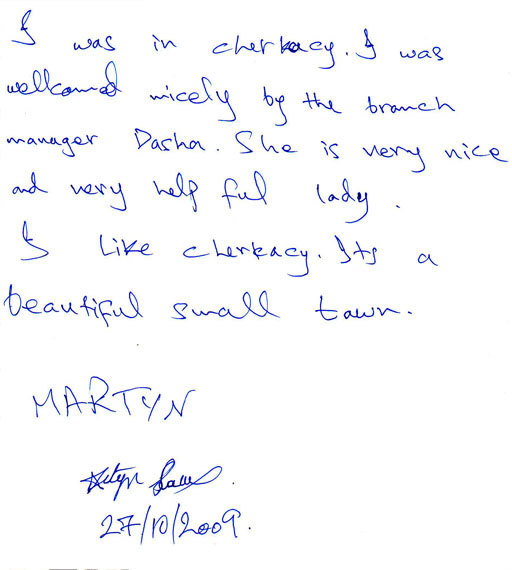 I was in cherkacy. I was
wellcomed nicely by the branch
manager Dasha. She is very nice
and very help ful lady.
I Like cherkacy. Its a
beautiful small town.
MARTYN
27/10/2009.